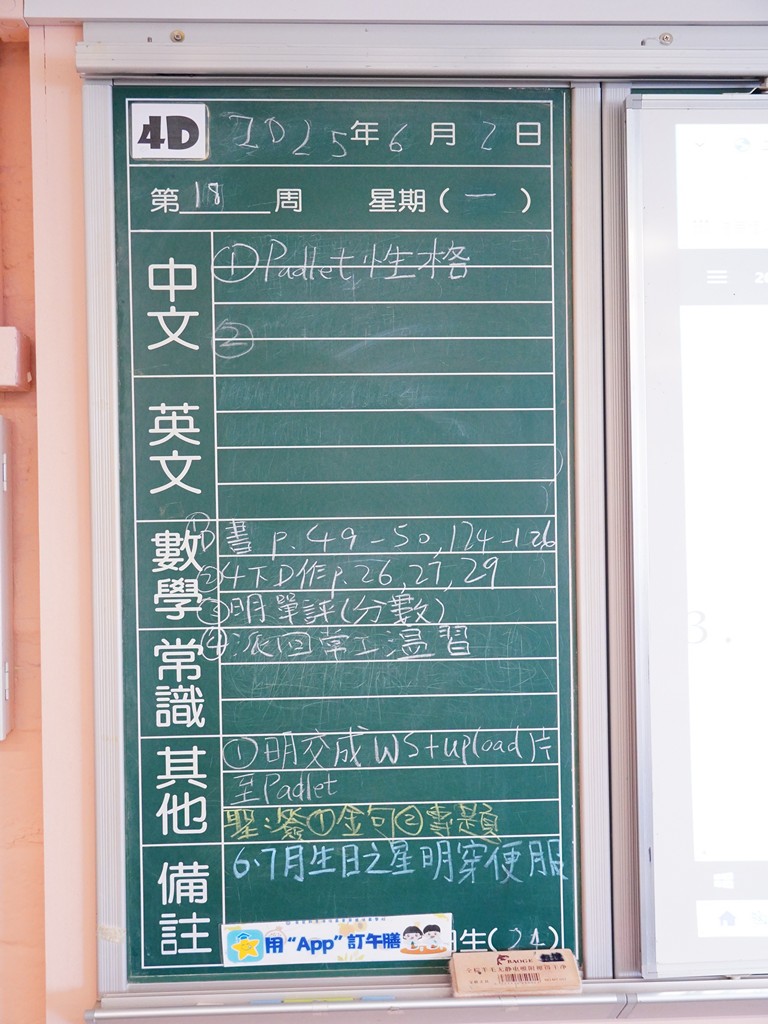 4D 2025年6月2日
第18周 星期(一)
中文
① Padlet 性格
②
英文
數學
① 書 p. 49-50, 124-126
② 4下D作 p. 26, 27, 29
③ 明單評(分數)
④ 派回常工溫習
常識
其他
① 明交成WS + upload 片
至 Padlet
聖 ① 金句 ② 專題
備註
6.7月生日之星明穿便服
用“App”訂午膳
生(24)
BAOGE